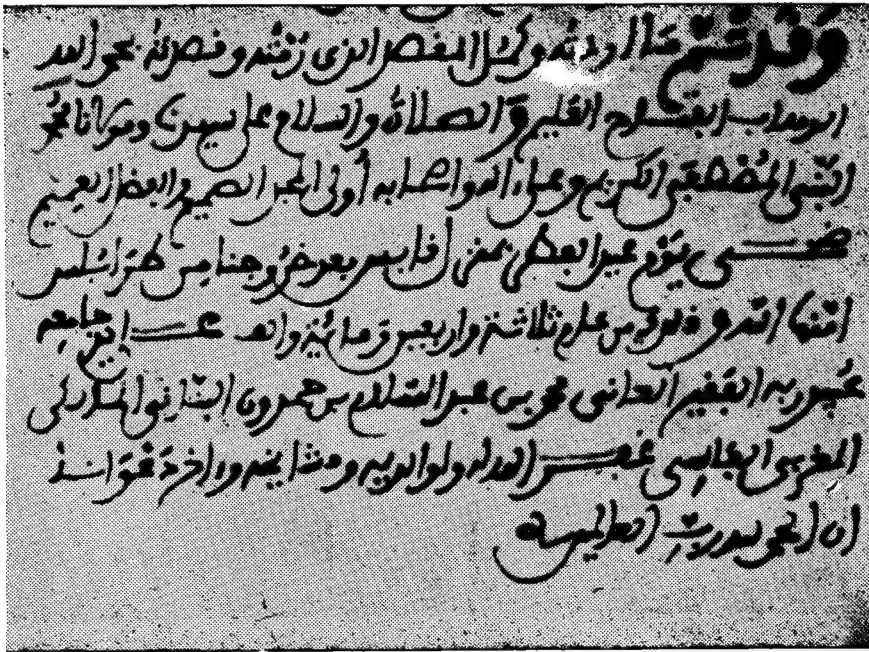 وَقَدْ تَمَّ مَا أردته وكمل الغرض الذى رُمْتُه وقصدته بحمد الله
الوهاب الفتاح العليم وَالصلاةُ والسلام على سيدنا ومولانا محمد
النَّبى المُصْطَفَى الكريم وعلى ءاله وأصحابه أُولى المجد الصميم والفضل العميم
ضحى يَوْم عيد الفطر بمدينة قابس بعد خرُوجنا مِن طرَابُلس
أمنها الله وذلك من عام ثلاثة وأربعين ومائة وألف على يد جامعه
عُبيد ربه الفقير الجانى محمد بن عبد السَّلام بن حمدون البنَّانى
المغربى الفاسِى غفر الله له ولوالديه ومشايخه وءاخر دَعْوَانا
أن الحمد لله رَبِّ العالمين